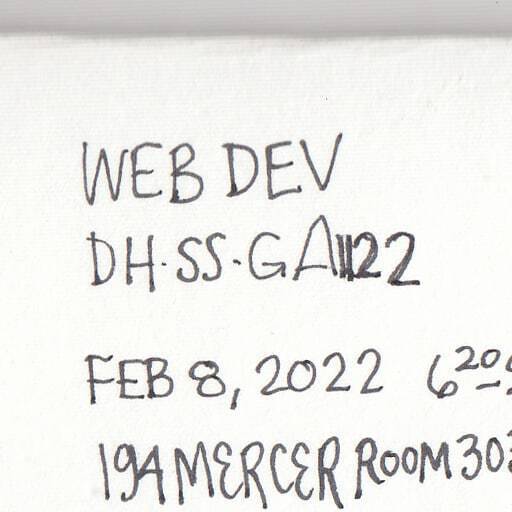 WEB DEV
DH-SS-GA1122
FEB 8, 2022 6 20
194 MERCER ROOM